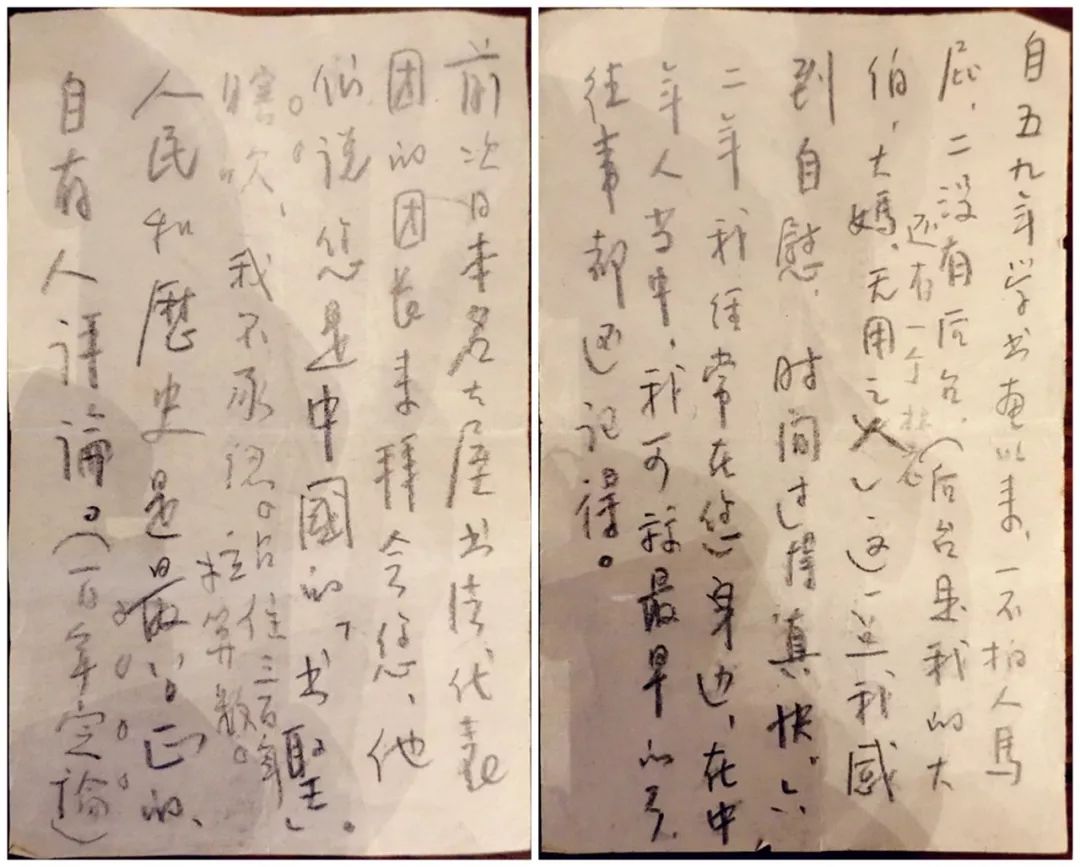 自五九年学书画以来，一不拍人馬
屁，二没有后台，（后台是我的大
还有一个林老
伯，大媽，无用之人）这一点我感
到自慰，时间过得真快，六
二年我经常在您身边，在中
年人当中，我可称最早的了，
往事都还记得。
前次日本名古屋书法代表
团的团长来拜会您，他
们说您是中國的“书聖”。
瞎吹，我不承認。站住三百年
算数。
人民和歷史是最公正的，
自有人評論。（一百年定論）